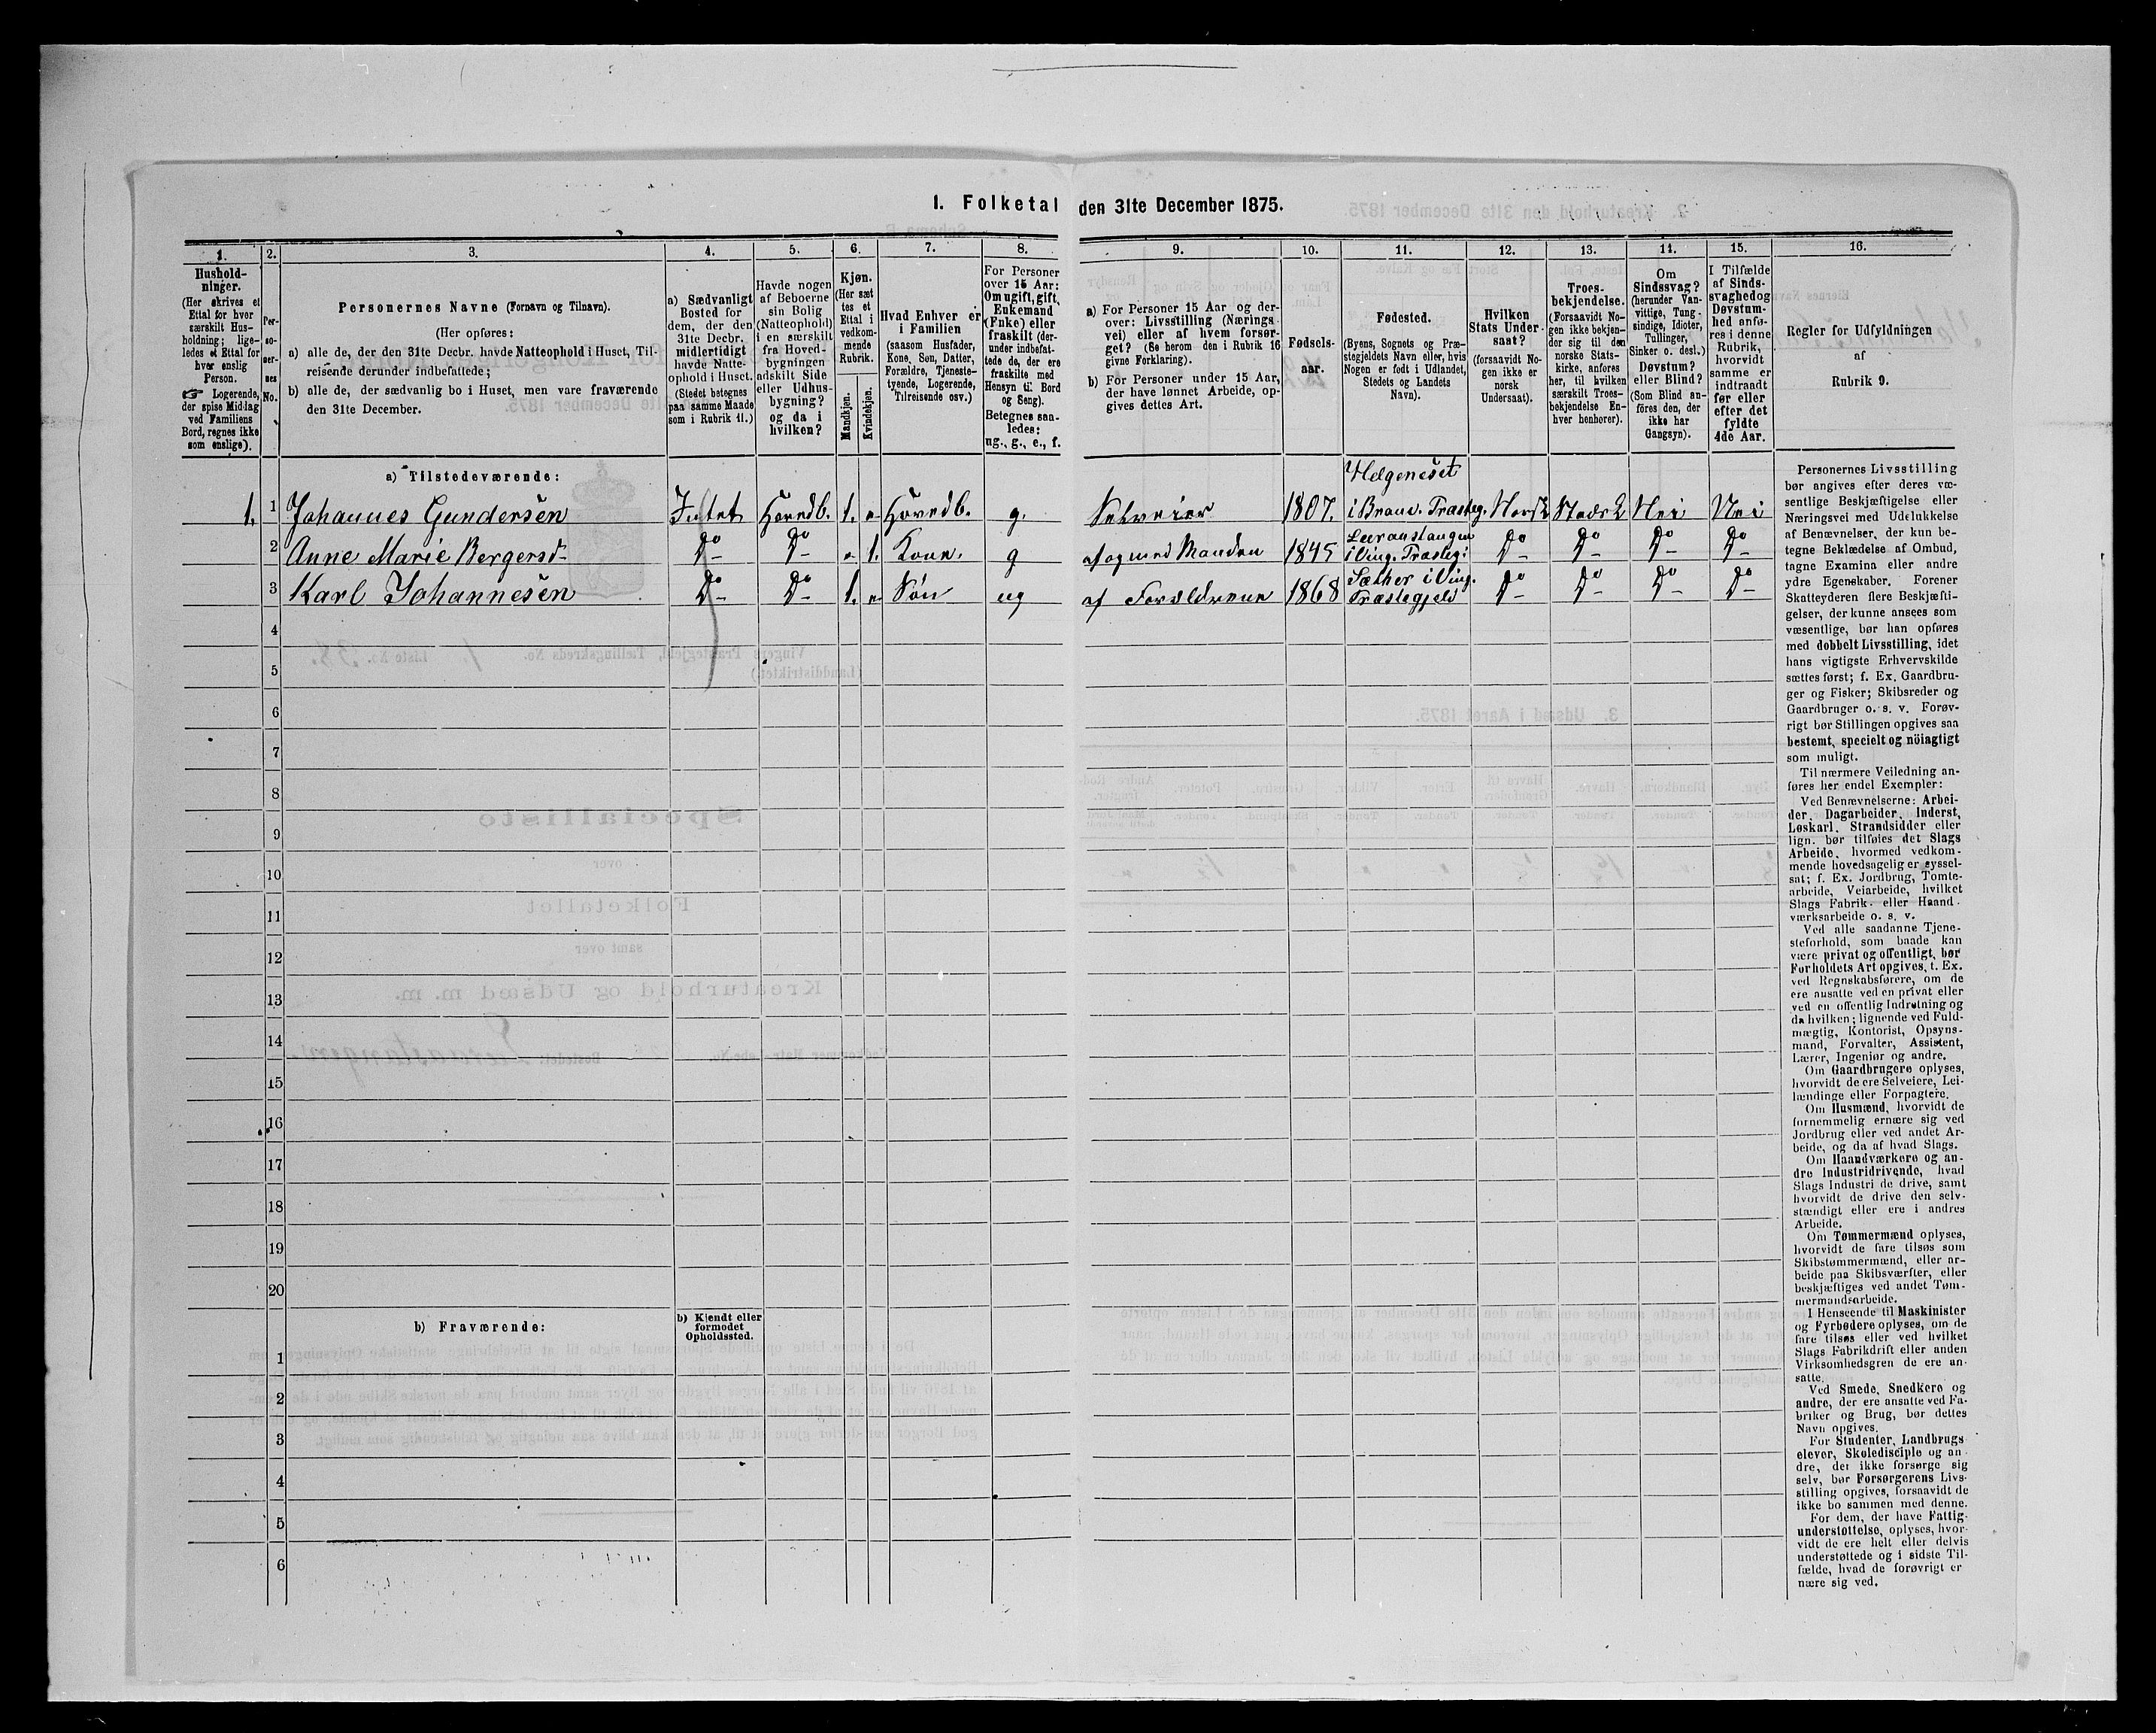 1. Folketal den 31te December 1875.
1.
Hushold-
ninger.
(Her skrives et
Ettal for hver
særskilt Hus-
holdning; lige-
ledes et Ettal for
hver enslig
Person.
☞ Logerende,
der spise Middag
ved Familiens
Bord, regnes ikke
som enslige).
2.
Per-
so-
ner-
nes
No.
3.
Personernes Navne (Fornavn og Tilnavn).
(Her opføres:
a) alle de, der den 31te Decbr. havde Natteophold i Huset, Til-
reisende derunder indbefattede;
b) alle de, der sædvanlig bo i Huset, men vare fraværende
den 31te December.
4.
a) Sædvanligt
Bosted for
dem, der den
31te Decbr.
midlertidigt
havde Natte-
ophold i Huset.
(Stedet betegnes
paa samme Maade
som i Rubrik 11.)
5.
Havde nogen
af Beboerne
sin Bolig
(Natteophold)
i en særskilt
fra Hoved-
bygningen
adskilt Side
eller Udhus-
bygning?
og da i
hvilken?
6.
Kjøn.
(Her sæt
tes et
Ettal i
vedkom-
mende
Rubrik.
Mandkjøn.
Kvindekjøn.
7.
Hvad Enhver er
i Familien
(saasom Husfader,
Kone, Søn, Datter,
Forældre, Tjeneste-
tyende, Logerende,
Tilreisende osv.)
8.
For Personer
over 15 Aar:
Om ugift, gift,
Enkemand
(Enke) eller
fraskilt (der-
under indbefat-
tede de, der ere
fraskilte med
Hensyn til Bord
og Seng).
Betegnes saa-
ledes:
ug., g., e., f.
9.
a) For Personer 15 Aar og der-
over: Livsstilling (Nærings
vei) eller af hvem forsør-
get? (Se herom den i Rubrik 16
givne Forklaring).
b) For Personer under 15 Aar,
der have lønnet Arbeide, op-
gives dettes Art.
10.
Fødsels-
aar.
11.
Fødested.
(Byens, Sognets og Præ-
stegjeldets Navn eller, hvis
Nogen er født i Udlandet,
Stedets og Landets
Navn).
12.
Hvilken
Stats Under-
saat?
(forsaavidt No-
gen ikke er
norsk
Undersaat).
13.
Troes-
bekjendelse.
(Forsaavidt No-
gen ikke bekjen-
der sig til den
norske Stats-
kirke, anføres
her, til hvilken
særskilt Troes-
bekjendelse En-
hver henhører).
14.
Om
Sindssvag?
(herunder Van-
vittige, Tung-
sindige, Idioter,
Tullinger,
Sinker o. desl.)
Døvstum?
eller Blind?
(Som Blind an-
føres den, der
ikke har
Gangsyn).
15.
I Tilfælde
af Sinds-
svaghed og
Døvstum-
hed anfø-
res i denne
Rubrik,
hvorvidt
samme er
indtraadt
før eller
efter det
fyldte
4de Aar.
16.
Regler for Udfyldningen
af
Rubrik 9.
a) Tilstedeværende:
1. 1 Johannes Gundersen Intet Hovedb. 1. Hovedb. g. Selveier 1807. Helgeneset i Brand. Præsteg. Norsk Stadsk Nei Nei
2 Anne Marie Bergersd. Do Do 1. Kone. g af og med Manden 1845 Leeranstangen i Ving. Præsteg: Do Do Do Do
3 Karl Johannesen Do Do 1. Søn ug af Forældrene 1868 Sæther i Ving. Præstegjeld Do Do Do Do
4
5
6
7
8
9
10
11
12
13
14
15
16
17
18
19
20
b) Fraværende:
b) Kjendt eller
formodet
Opholdssted.
1
2
3
4
5
6
Personernes Livsstilling
bør angives efter deres væ-
sentlige Beskjæftigelse eller
Næringsvei med Udelukkelse
af Benævnelser, der kun be-
tegne Beklædelse af Ombud,
tagne Examina eller andre
ydre Egenskaber. Forener
Skatteyderen flere Beskjæfti-
gelser, der kunne ansees som
væsentlige, bør han opføres
med dobbelt Livsstilling, idet
hans vigtigste Erhvervskilde
sættes først; f. Ex. Gaardbru-
ger og Fisker; Skibsreder og
Gaardbruger o. s. v. Forøv-
rigt bør Stillingen opgives saa
bestemt, specielt og nöiagtigt
som muligt.
Til nærmere Veiledning an-
føres her endel Exempler:
Ved Benævnelserne: Arbei-
der, Dagarbeider, Inderst,
Løskarl, Strandsidder eller
lign. bør tilføies det Slags
Arbeide, hvormed vedkom-
mende hovedsagelig er syssel-
sat; f. Ex. Jordbrug, Tomte-
arbeide, Veiarbeide, hvilket
Slags Fabrik- eller Haand-
værksarbeide o. s. v.
Ved alle saadanne Tjene-
steforhold, som baade kan
være privat og offentligt, bør
Forholdets Art opgives, t. Ex.
ved Regnskabsførere, om de
ere ansatte ved en privat eller
ved en offentlig Indretning og
da hvilken; lignende ved Fuld-
mægtig, Kontorist, Opsyns-
mand, Forvalter, Assistent,
Lærer, Ingeniør og andre.
Om Gaardbrugere oplyses,
hvorvidt de ere Selveiere, Lei-
lændinge eller Forpagtere.
Om Husmænd, hvorvidt de
fornemmelig ernære sig ved
Jordbrug eller ved andet Ar-
beide, og da af hvad Slags.
Om Haandværkere og an-
dre Industridrivende, hvad
Slags Industri de drive, samt
hvorvidt de drive den selv-
stændigt eller ere i andres
Arbeide.
Om Tømmermænd oplyses,
hvorvidt de fare tilsøs som
Skibstømmermænd, eller ar-
beide paa Skibsværfter, eller
beskjæftiges ved andet Tøm-
mermandsarbeide.
I Henseende til Maskinister
og Fyrbødere oplyses, om de
fare tilsøs eller ved hvilket
Slags Fabrikdrift eller anden
Virksomhedsgren de ere an-
satte.
Ved Smede, Snedkere og
andre, der ere ansatte ved Fa-
briker og Brug, bør dettes
Navn opgives.
For Studenter, Landbrugs
elever, Skoledisciple og an-
dre, der ikke forsørge sig
selv, bør Forsørgerens Livs-
stilling opgives, forsaavidt de
ikke bo sammen med denne.
For dem, der have Fattig-
understøttelse, oplyses, hvor-
vidt de ere helt eller delvis
understøttede og i sidste Til-
fælde, hvad de forøvrigt er
nære sig ved.